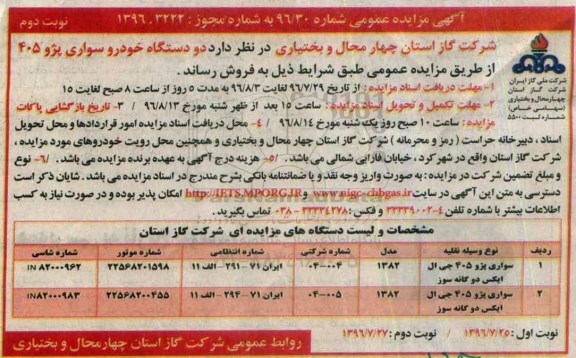 آگهی مزایده عمومی شماره ۹۶/۳۰ به شماره مجوز : ۱۳۹۶.۳۲۲۲
نوبت دوم
شرکت گاز استان چهار محال و بختیاری در نظر دارد دو دستگاه خودرو سواری پژو ۴۰۵
از طریق مزایده عمومی طبق شرایط ذیل به فروش رساند .
شرکت ملی گاز ایران
شرکت گاز استان
چهارمحال و بختیاری
(سهامی خاص)
شماره ثبت ۵۵۰۰
۱- مهلت دریافت اسناد مزایده : از تاریخ ۹۶/۷/۲۹ لغایت ۹۶/۸/۳ به مدت ۵ روز از ساعت ۸ صبح لغایت ۱۵
۲- مهلت تکمیل و تحویل اسناد مزایده : ساعت ۱۵ بعد از ظهر شنبه مورخ ۹۶/۸/۱۳ / ۳- تاریخ بازگشایی پاکات
مزایده : ساعت ۱۰ صبح روز یک شنبه مورخ ۹۶/۸/۱۴ / ۴- محل دریافت اسناد مزایده امور قراردادها و محل تحویل
اسناد ، دبیرخانه حراست ( رمز و محرمانه ) شرکت گاز استان چهار محال و بختیاری و همچنین محل رویت خودروهای مورد مزایده ،
شرکت گاز استان واقع در شهرکرد ، خیابان فارابی شمالی می باشد . /۵- هزینه درج آگهی به عهده برنده مزایده می باشد . /۶- نوع
و مبلغ تضمین شرکت در مزایده : به صورت واریز وجه نقد و یا ضمانتنامه بانکی بشرح مندرج در اسناد مزایده می باشد . شایان ذکر است
دسترسی به متن این آگهی در سایت www.nigc-chbgas.ir و http://IETS.MPORG.IR امکان پذیر بوده و در صورت نیاز به کسب
اطلاعات بیشتر با شماره تلفن ۴-۳۳۳۳۹۰۰۲ و فکس : ۳۳۳۳۴۲۷۸ - ۰۳۸ تماس بگیرید.
مشخصات و لیست دستگاه های مزایده ای شرکت گاز استان
ردیف نوع وسیله نقلیه مدل شماره شرکتی شماره انتظامی شماره موتور شماره شاسی
۱ سواری پژو ۴۰۵ جی ال ایکس دو گانه سوز ۱۳۸۲ ۰۴-۰۰۴ ایران ۷۱ - ۲۹۱ - الف ۱۱ ۲۲۵۶۸۲۰۱۵۹۸ IN۸۲۰۰۰۹۶۲
۲ سواری پژو ۴۰۵ جی ال ایکس دو گانه سوز ۱۳۸۲ ۰۴-۰۰۵ ایران ۷۱ - ۲۹۴ - الف ۱۱ ۲۲۵۶۸۲۰۰۴۵۵ IN۸۲۰۰۰۹۸۳
نوبت اول : ۱۳۹۶/۷/۲۵ / نوبت دوم : ۱۳۹۶/۷/۲۷
روابط عمومی شرکت گاز استان چهارمحال و بختیاری